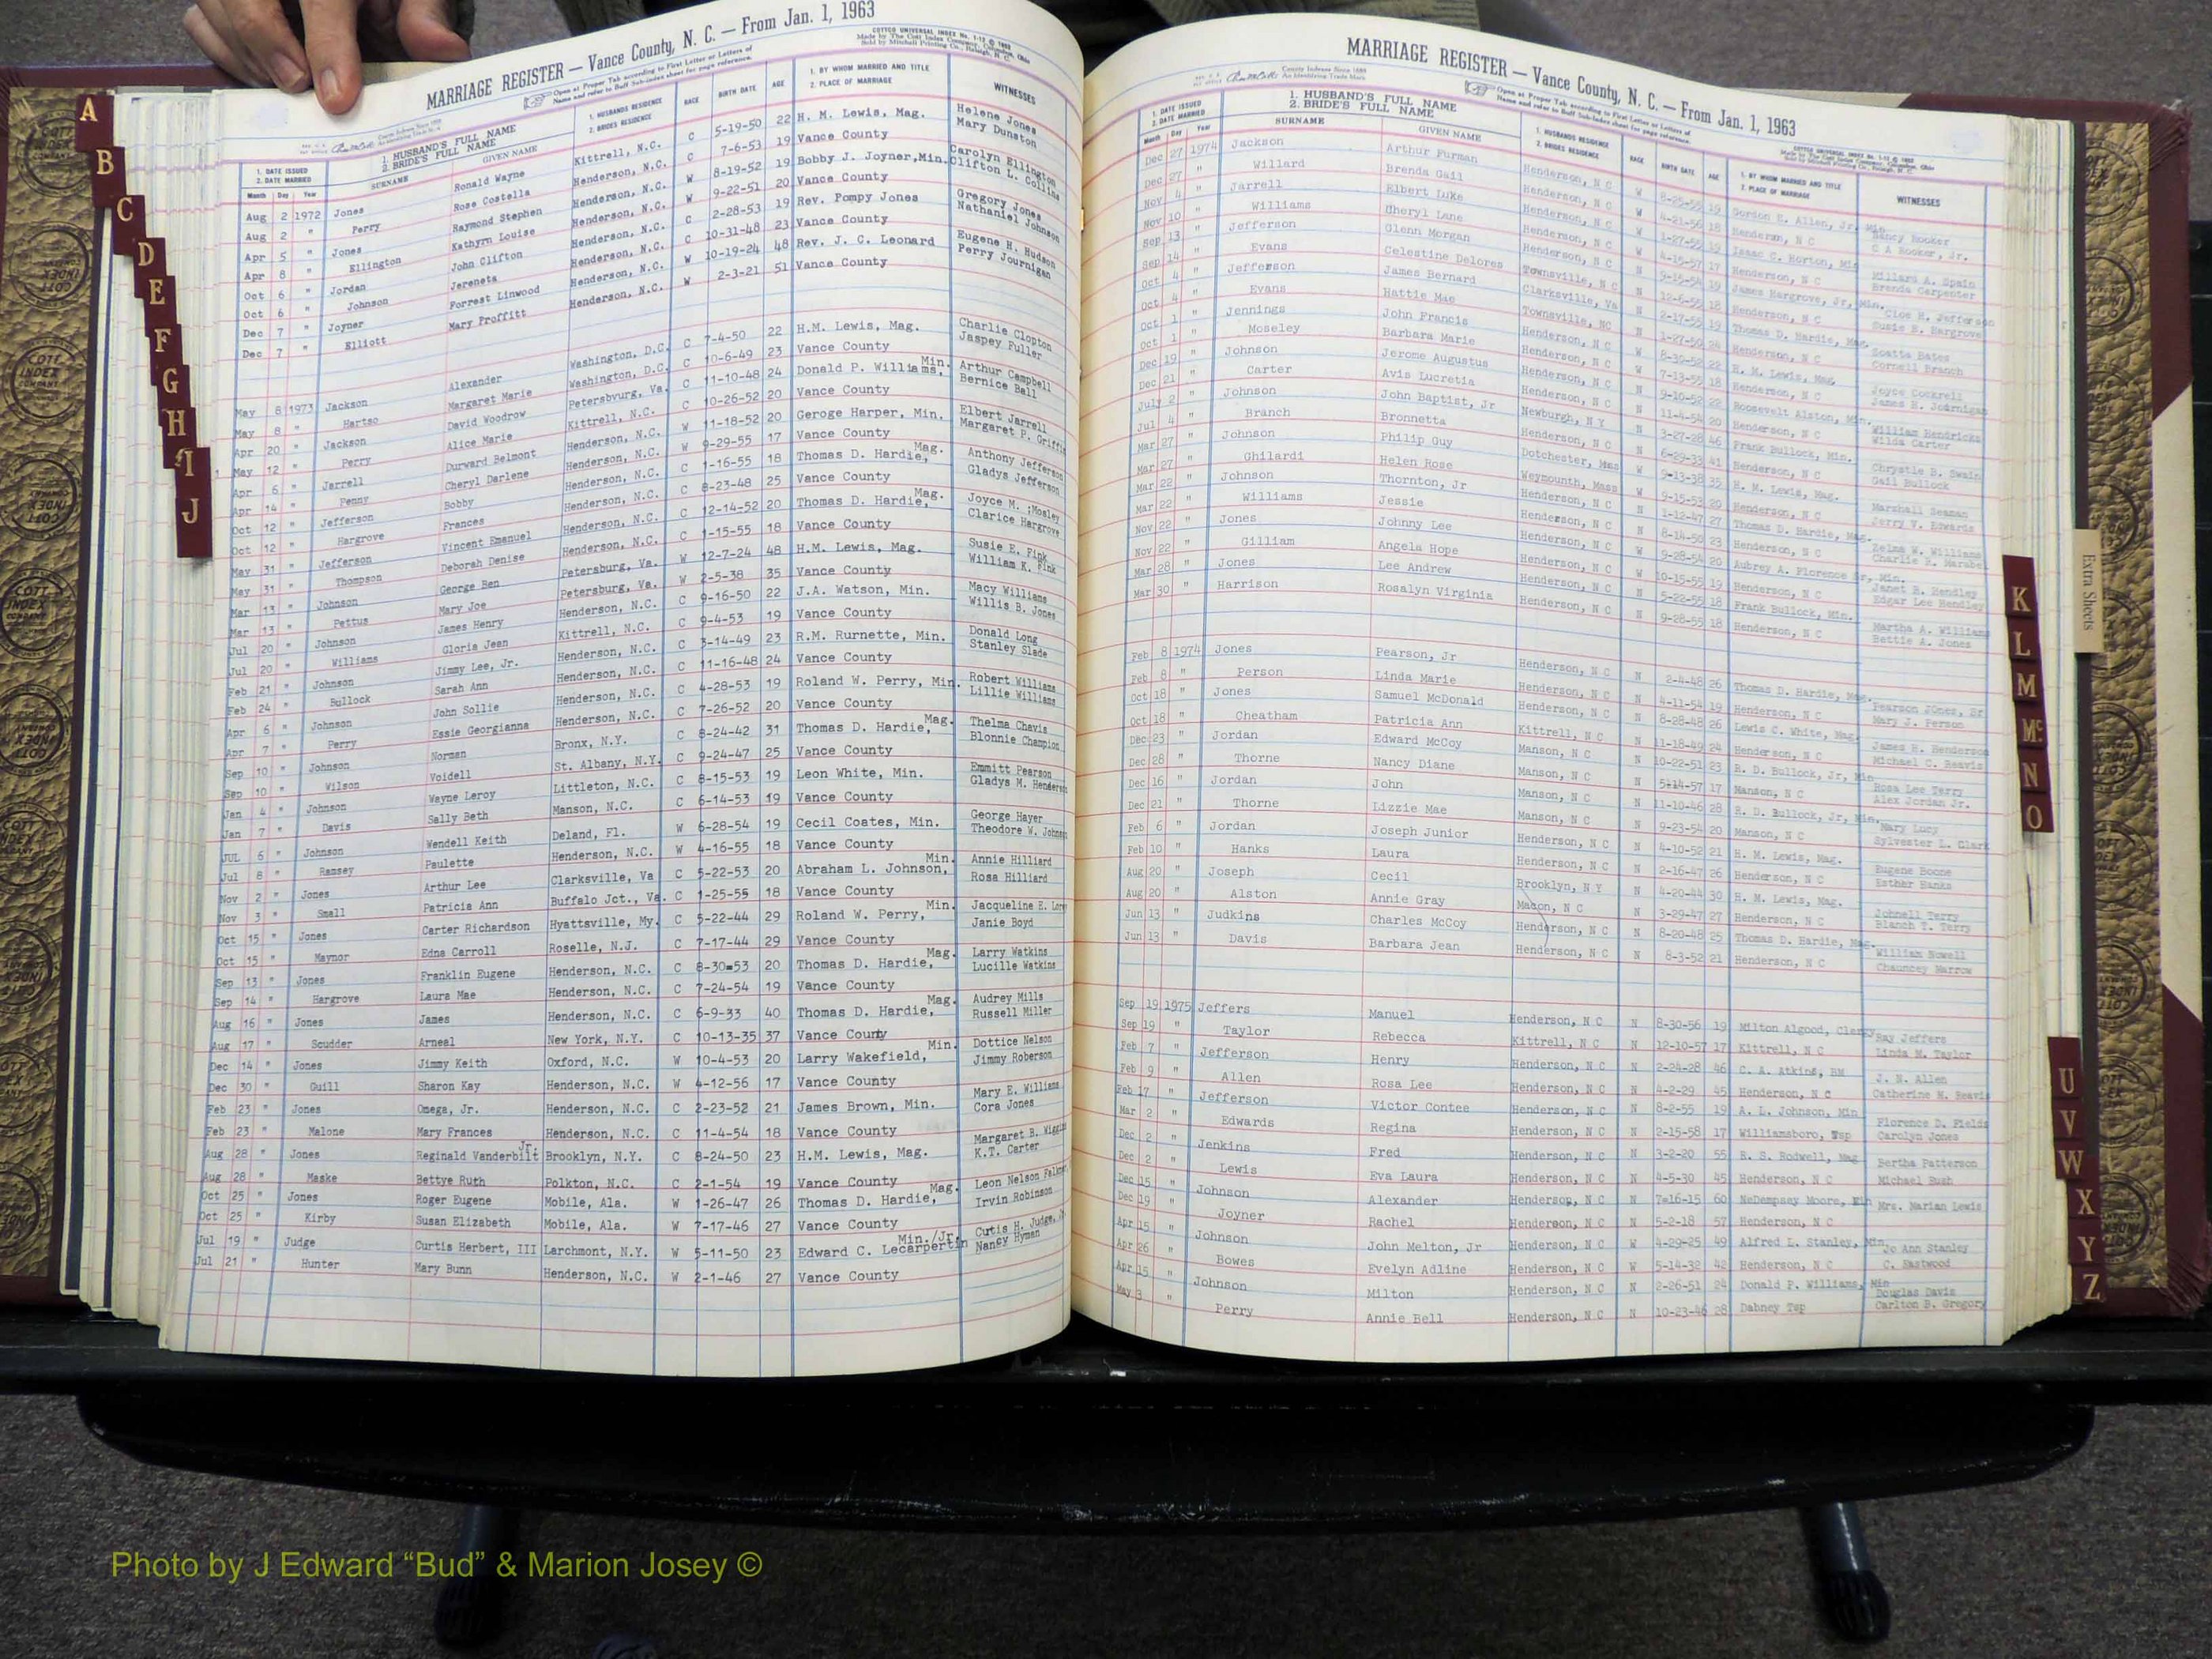 MARRIAGE REGISTER — Vance County, N. C. — From Jan. 1, 1963
COTTCO UNIVERSAL INDEX No. 1-12 © 1962
Made by The Cott Index Company, Columbus, Ohio
Sold by Mitchell Printing Co., Raleigh, N. C.
Open at Proper Tab according to First Letter or Letters of
Name and refer to Buff Sub-index sheet for page reference.
1. DATE ISSUED 2. DATE MARRIED
1. HUSBAND'S FULL NAME 2. BRIDE'S FULL NAME
1. HUSBANDS RESIDENCE 2. BRIDES RESIDENCE
RACE BIRTH DATE AGE
1. BY WHOM MARRIED AND TITLE 2. PLACE OF MARRIAGE
WITNESSES
Month Day Year SURNAME GIVEN NAME
Aug 2 1972 Jones Ronald Wayne Kittrell, N.C. C 5-19-50 22 H. M. Lewis, Mag. Helene Jones
Aug 2 " Perry Rose Costella Henderson, N.C. C 7-6-53 19 Vance County Mary Dunston
Apr 5 " Jones Raymond Stephen Henderson, N.C. W 8-19-52 19 Bobby J. Joyner, Min. Carolyn Ellington
Apr 8 " Ellington Kathyrn Louise Henderson, N.C. W 9-22-51 20 Vance County Clifton L. Collins
Oct 6 " Jordan John Clifton Henderson, N.C. C 2-28-53 19 Rev. Pompy Jones Gregory Jones
Oct 6 " Johnson Jereneta Henderson, N.C. C 10-31-48 23 Vance County Nathaniel Johnson
Dec 7 " Joyner Forrest Linwood Henderson, N.C. W 10-19-24 48 Rev. J. C. Leonard Eugene H. Hudson
Dec 7 " Elliott Mary Proffitt Henderson, N.C. W 2-3-21 51 Vance County Perry Journigan
May 8 1973 Jackson Alexander Washington, D.C. C 7-4-50 22 H.M. Lewis, Mag. Charlie Clopton
May 8 " Hartso Margaret Marie Washington, D.C. C 10-6-49 23 Vance County Jaspey Fuller
Apr 20 " Jackson David Woodrow Petersbvurg, Va. C 11-10-48 24 Donald P. Williams, Min. Arthur Campbell
May 12 " Perry Alice Marie Kittrell, N.C. C 10-26-52 20 Vance County Bernice Ball
Apr 6 " Jarrell Durward Belmont Henderson, N.C. W 11-18-52 20 Geroge Harper, Min. Elbert Jarrell
Apr 14 " Penny Cheryl Darlene Henderson, N.C. W 9-29-55 17 Vance County Margaret P. Griffin
Oct 12 " Jefferson Bobby Henderson, N.C. C 1-16-55 18 Thomas D. Hardie, Mag. Anthony Jefferson
Oct 12 " Hargrove Frances Henderson, N.C. C 8-23-48 25 Vance County Gladys Jefferson
May 31 " Jefferson Vincent Emanuel Henderson, N.C. C 12-14-52 20 Thomas D. Hardie, Mag. Joyce M. ;Mosley
May 31 " Thompson Deborah Denise Henderson, N.C. C 1-15-55 18 Vance County Clarice Hargrove
Mar 13 " Johnson George Ben Petersburg, Va. W 12-7-24 48 H.M. Lewis, Mag. Susie E. Fink
Mar 13 " Pettus Mary Joe Petersburg, Va. W 2-5-38 35 Vance County William K. Fink
Jul 20 " Johnson James Henry Henderson, N.C. C 9-16-50 22 J.A. Watson, Min. Macy Williams
Jul 20 " Williams Gloria Jean Kittrell, N.C. C 9-4-53 19 Vance County Willis B. Jones
Feb 21 " Johnson Jimmy Lee, Jr. Henderson, N.C. C 3-14-49 23 R.M. Rurnette, Min. Donald Long
Feb 24 " Bullock Sarah Ann Henderson, N.C. C 11-16-48 24 Vance County Stanley Slade
Apr 6 " Johnson John Sollie Henderson, N.C. C 4-28-53 19 Roland W. Perry, Min. Robert Williams
Apr 7 " Perry Essie Georgianna Henderson, N.C. C 7-26-52 20 Vance County Lillie Williams
Sep 10 " Johnson Norman Bronx, N.Y. C 8-24-42 31 Thomas D. Hardie, Mag. Thelma Chavis
Sep 10 " Wilson Voidell St. Albany, N.Y. C 9-24-47 25 Vance County Blonnie Champion
Jan 4 " Johnson Wayne Leroy Littleton, N.C. C 8-15-53 19 Leon White, Min. Emmitt Pearson
Jan 7 " Davis Sally Beth Manson, N.C. C 6-14-53 19 Vance County Gladys M. Henderson
JUL 6 " Johnson Wendell Keith Deland, Fl. W 6-28-54 19 Cecil Coates, Min. George Hayer
Jul 8 " Ramsey Paulette Henderson, N.C. W 4-16-55 18 Vance County Theodore W. Johnson
Nov 2 " Jones Arthur Lee Clarksville, Va C 5-22-53 20 Abraham L. Johnson, Min. Annie Hilliard
Nov 3 " Small Patricia Ann Buffalo Jct., Va. C 1-25-55 18 Vance County Rosa Hilliard
Oct 15 " Jones Carter Richardson Hyattsville, My. C 5-22-44 29 Roland W. Perry, Min. Jacqueline E.
Oct 15 " Maynor Edna Carroll Roselle, N.J. C 7-17-44 29 Vance County Janie Boyd
Sep 13 " Jones Franklin Eugene Henderson, N.C. C 8-30-53 20 Thomas D. Hardie, Mag. Larry Watkins
Sep 14 " Hargrove Laura Mae Henderson, N.C. C 7-24-54 19 Vance County Lucille Watkins
Aug 16 " Jones James Henderson, N.C. C 6-9-33 40 Thomas D. Hardie, Mag. Audrey Mills
Aug 17 " Scudder Arneal New York, N.Y. C 10-13-35 37 Vance County Russell Miller
Dec 14 " Jones Jimmy Keith Oxford, N.C. W 10-4-53 20 Larry Wakefield, Min. Dottice Nelson
Dec 30 " Guill Sharon Kay Henderson, N.C. W 4-12-56 17 Vance County Jimmy Roberson
Feb 23 " Jones Omega, Jr. Henderson, N.C. C 2-23-52 21 James Brown, Min. Mary E. Williams
Feb 23 " Malone Mary Frances Henderson, N.C. C 11-4-54 18 Vance County Cora Jones
Aug 28 " Jones Reginald Vanderbilt Jr. Brooklyn, N.Y. C 8-24-50 23 H.M. Lewis, Mag. Margaret B. Wiggins
Aug 28 " Maske Bettye Ruth Polkton, N.C. C 2-1-54 19 Vance County K.T. Carter
Oct 25 " Jones Roger Eugene Mobile, Ala. W 1-26-47 26 Thomas D. Hardie, Mag. Leon Nelson Falkner
Oct 25 " Kirby Susan Elizabeth Mobile, Ala. W 7-17-46 27 Vance County Irvin Robinson
Jul 19 " Judge Curtis Herbert, III Larchmont, N.Y. W 5-11-50 23 Edward C. Lecarpertin Min./Jr. Curtis H. Judge, Jr.
Jul 21 " Hunter Mary Bunn Henderson, N.C. W 2-1-46 27 Vance County Nancy Hyman
MARRIAGE REGISTER — Vance County, N. C. — From Jan. 1, 1963
County Indexes Since 1888
An Identifying Trade Mark
Open at Proper Tab according to First Letter or Letters of
Name and refer to Buff Sub-index sheet for page reference.
COTTCO UNIVERSAL INDEX No. 1-12 © 1962
Made by The Cott Index Company, Columbus, Ohio
Sold by Mitchell Printing Co., Raleigh, N. C.
1. DATE ISSUED 2. DATE MARRIED
1. HUSBAND'S FULL NAME 2. BRIDE'S FULL NAME
1. HUSBANDS RESIDENCE 2. BRIDES RESIDENCE
RACE BIRTH DATE AGE
1. BY WHOM MARRIED AND TITLE 2. PLACE OF MARRIAGE
WITNESSES
Month Day Year SURNAME GIVEN NAME
Dec 27 1974 Jackson Arthur Furman Henderson, N C W 8-25-55 19 Gordon E. Allen, Jr, Min Nancy Hooker
Dec 27 " Willard Brenda Gail Henderson, N C W 4-21-56 18 Henderson, N C C A Hooker, Jr.
Nov 4 " Jarrell Elbert Luke Henderson, N C W 1-27-55 19 Isaac C. Horton, Min Millard A. Spain
Nov 10 " Williams Cheryl Lane Henderson, N C W 4-15-57 17 Henderson, N C Brenda Carpenter
Sep 13 " Jefferson Glenn Morgan Henderson, N C N 9-15-54 19 James Hargrove, Jr, Min. Clos H. Jefferson
Sep 14 " Evans Celestine Delores Townsville, N C N 12-6-55 18 Henderson, N C Susie E. Hargrove
Oct 4 " Jefferson James Bernard Clarksville, Va N 2-17-55 19 Thomas D. Hardie, Mag. Scatta Bates
Oct 4 " Evans Hattie Mae Townsville, NC N 1-27-50 24 Henderson, N C Cornell Branch
Oct 1 " Jennings John Francis Henderson, N C W 8-30-52 22 H. M. Lewis, Mag. Joyce Cockrell
Oct 1 " Moseley Barbara Marie Henderson, N C W 7-13-55 18 Henderson, N C James H. Journigan
Dec 19 " Johnson Jerome Augustus Henderson, N C N 9-10-52 22 Roosevelt Alston, Min. William Hendricks
Dec 21 " Carter Avis Lucretia Henderson, N C N 11-4-54 20 Henderson, N C Wilda Carter
July 2 " Johnson John Baptist, Jr Newburgh, N Y N 3-27-28 46 Frank Bullock, Min. Chrystie B. Swain
Jul 4 " Branch Bronnetta Henderson, N C N 6-29-33 41 Henderson, N C Gail Bullock
Mar 27 " Johnson Philip Guy Dotchester, Mass W 9-13-38 35 H. M. Lewis, Mag. Marshall Seaman
Mar 27 " Ghilardi Helen Rose Weymouth, Mass W 9-15-53 20 Henderson, N C Perry V. Edwards
Mar 22 " Johnson Thornton, Jr Henderson, N C N 1-12-47 27 Thomas D. Hardie, Mag. Zelma W. Williams
Mar 22 " Williams Jessie Henderson, N C N 8-14-50 23 Henderson, N C Charlie R. Marable
Nov 22 " Jones Johnny Lee Henderson, N C W 9-28-54 20 Aubrey A. Florence Sr, Min. Janet R. Hendley
Nov 22 " Gilliam Angela Hope Henderson, N C W 10-15-55 19 Henderson, N C Edgar Lee Hendley
Mar 28 " Jones Lee Andrew Henderson, N C N 5-22-55 18 Frank Bullock, Min. Martha A. Williams
Mar 30 " Harrison Rosalyn Virginia Henderson, N C N 9-28-55 18 Henderson, N C Bettie A. Jones
Feb 8 1974 Jones Pearson, Jr Henderson, N C N 2-4-48 26 Thomas D. Hardie, Mag. Pearson Jones, Sr
Feb 8 " Person Linda Marie Henderson, N C N 4-11-54 19 Henderson, N C Mary J. Person
Oct 18 " Jones Samuel McDonald Henderson, N C N 8-28-48 26 Lewis C. White, Mag. James H. Henderson
Oct 18 " Cheatham Patricia Ann Kittrell, N C N 11-18-49 24 Henderson, N C Michael C. Reavis
Dec 23 " Jordan Edward McCoy Manson, N C N 10-22-51 23 R. D. Bullock, Jr, Min Rosa Lee Terry
Dec 28 " Thorne Nancy Diane Manson, N C N 5-14-57 17 Manson, N C Alex Jordan Jr.
Dec 16 " Jordan John Manson, N C N 11-10-46 28 R. D. Bullock, Jr, Min. Mary Lucy
Dec 21 " Thorne Lizzie Mae Manson, N C N 9-23-54 20 Manson, N C Sylvester L. Clark
Feb 6 " Jordan Joseph Junior Henderson, N C N 4-10-52 21 H. M. Lewis, Mag. Eugene Boone
Feb 10 " Hanks Laura Henderson, N C N 2-16-47 26 Henderson, N C Esther Hanks
Aug 20 " Joseph Cecil Brooklyn, N Y N 4-20-44 30 H. M. Lewis, Mag. Johnell Terry
Aug 20 " Alston Annie Gray Macon, N C N 3-29-47 27 Henderson, N C Blanch T. Terry
Jun 13 " Judkins Charles McCoy Henderson, N C N 8-20-48 25 Thomas D. Hardie, Mag. William Nowell
Jun 13 " Davis Barbara Jean Henderson, N C N 8-3-52 21 Henderson, N C Chauncey Marrow
Sep 19 1975 Jeffers Manuel Henderson, N C N 8-30-56 19 Milton Algood, Clergy Ray Jeffers
Sep 19 " Taylor Rebecca Kittrell, N C N 12-10-57 17 Kittrell, N C Linda M. Taylor
Feb 7 " Jefferson Henry Henderson, N C N 2-24-28 46 C. A. Atkins, BM J. N. Allen
Feb 9 " Allen Rosa Lee Henderson, N C N 4-2-29 45 Henderson, N C Catherine H. Reavis
Feb 17 " Jefferson Victor Contee Henderson, N C N 8-2-55 19 A. L. Johnson, Min Florence D. Fields
Mar 2 " Edwards Regina Henderson, N C N 2-15-58 17 Williamsboro, Twp Carolyn Jones
Dec 2 " Jenkins Fred Henderson, N C N 3-2-20 55 R. S. Rodwell, Mag Bertha Patterson
Dec 2 " Lewis Eva Laura Henderson, N C N 4-5-30 45 Henderson, N C Michael Bush
Dec 15 " Johnson Alexander Henderson, N C N 7-16-15 60 McDempsey Moore, Min Mrs. Marian Lewis
Dec 19 " Joyner Rachel Henderson, N C N 5-2-18 57 Henderson, N C
Apr 15 " Johnson John Melton, Jr Henderson, N C W 4-29-25 49 Alfred L. Stanley, Min Jo Ann Stanley
Apr 26 " Bowes Evelyn Adline Henderson, N C W 5-14-32 42 Henderson, N C C. Eastwood
Apr 15 " Johnson Milton Henderson, N C N 2-26-51 24 Donald P. Williams, Min Douglas Davis
May 3 " Perry Annie Bell Henderson, N C N 10-23-46 28 Dabney Twp Carlton B. Gregory
A
B
C
D
E
F
G
H
I
J
K
L
M
Mc
N
O
U
V
W
X
Y
Z
Extra Sheets
COTT INDEX COMPANY
Photo by J Edward “Bud” & Marion Josey ©